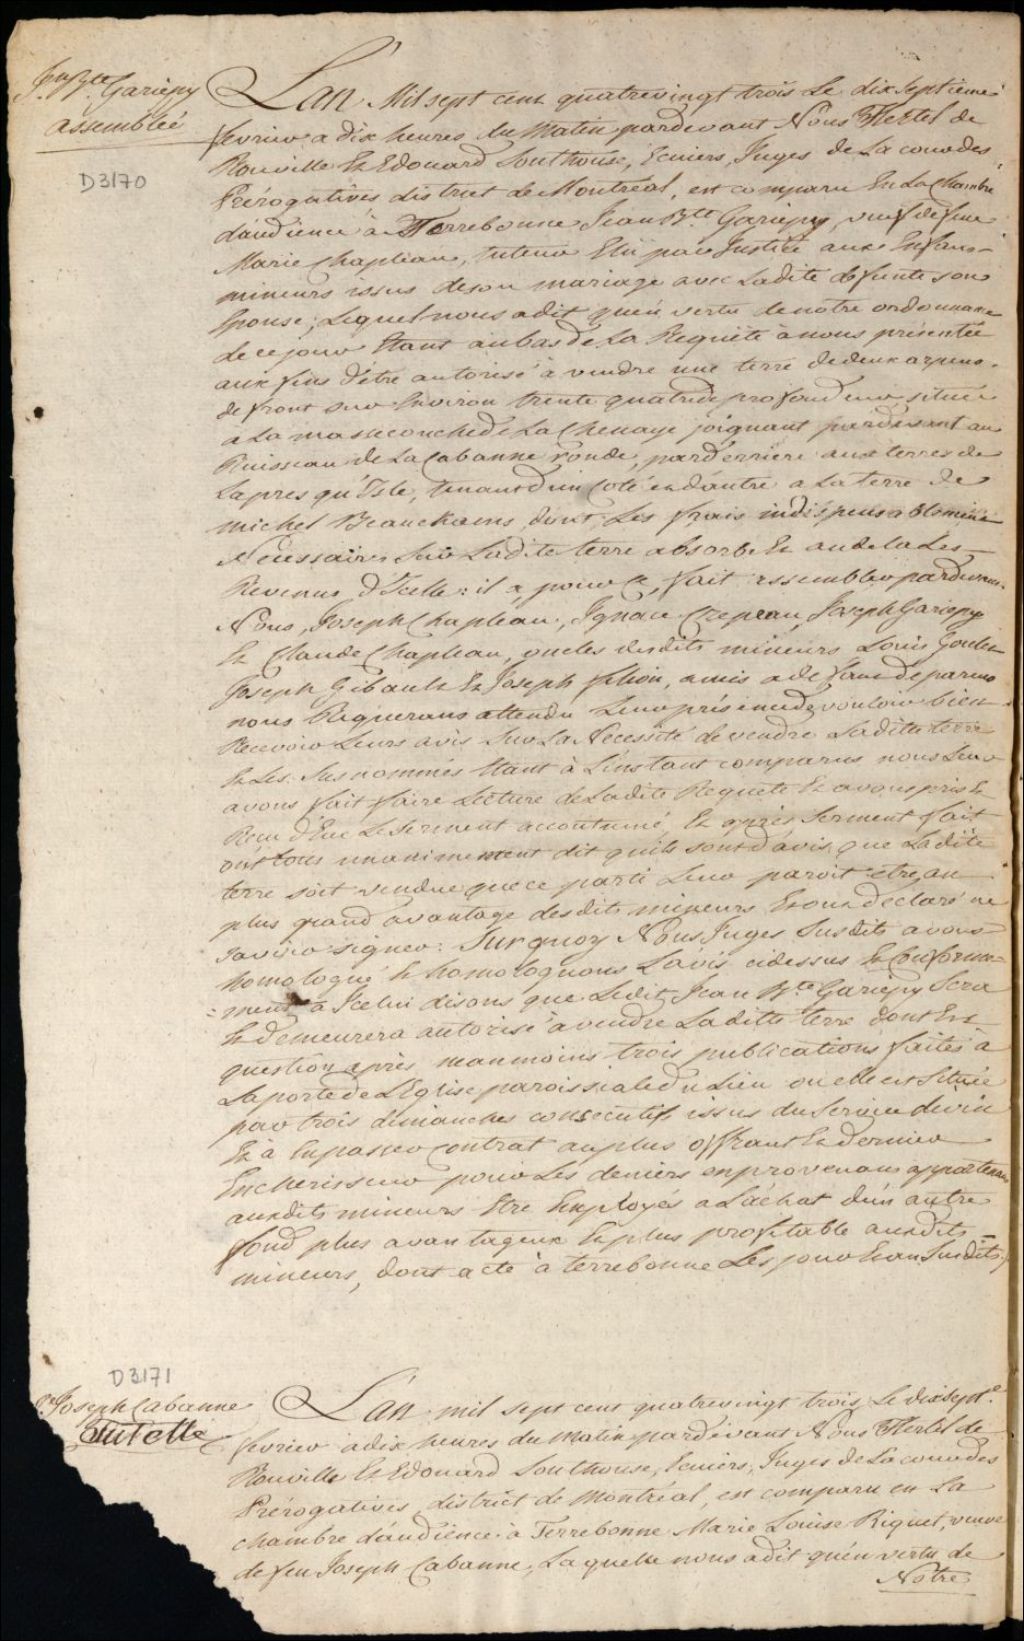 Jn Bte Gariepy
assemblée
D3170
L'an Mil sept cent quatrevingt trois Le dix septieme
fevrier a dix heures du Matin pardevant Nous Hertel de
Rouville Et Edouard Southouse, Ecuiers, Juges de La cour des
Prérogatives district de Montréal, est comparu En La Chambre
d'audience à Terrebonne Jean Bte Gariepy, veuf de feue
Marie Chapleau, tuteur Elu par Justice aux Enfans
mineurs issus de son mariage avec Ladite defunte son
Epouse; Lequel nous a dit qu'en vertu de notre ordonnance
de ce jour Etant au bas de La Requête à nous présentée
aux fins d'être autorisé à vendre une terre de deux arpens
de front sur Environ trente quatre de profondeur située
a La massecouche de La Chenaye joignant pardevant au
Ruisseau de La Cabanne ronde, par derriere aux terres de
La presqu'Isle, tenant d'un coté et d'autre a La terre de
michel Beauchams, dont Les frais indispensablement
Nécessaires Sur Ladite terre absorbe Et au dela Les
Revenus d'Icelle: il a, pour ce, fait assembler pardevant
Nous, Joseph Chapleau, Ignace Crepeau, Joseph Gariepy
Et Claude Chapleau, oncles desdits mineurs Louis Goulet
Joseph Gibault Et Joseph filion, amis a defaut de parens
nous Requerans attendu Leur présence de vouloir bien
Recevoir Leurs avis Sur La Nécessité de vendre Laditte terre
Et Les Susnommés Etant à L'instant comparus nous Leur
avons fait faire Lecture de Ladite Requête Et avons pris Et
Recu d'Eux Le Serment accoutumé, Et après Serment fait
ont tous unanimement dit qu'ils sont d'avis que Ladite
terre soit vendue que ce parti Leur paroit etre au
plus grand avantage desdits mineurs Et ont déclaré ne
savoir signer: Surquoy Nous Juges Susdits avons
homologué Et homologuons L'avis cidessus Et Conformé-
=ment à Icelui disons que Ledit Jean Bte Gariepy Sera
Et demeurera autorisé a vendre Laditte terre dont Est
question après neanmoins trois publications faites à
La porte de L'Eglise paroissiale du Lieu ou elle est Située
par trois dimanches consécutifs issus du Service divin
Et à En passer Contrat au plus offrant Et dernier
Encherisseur pour Les deniers en provenans appartenans
auxdits mineurs Etre Employés a L'achat d'un autre
fond plus avantageux Et plus profitable auxdits
mineurs, dont acte à terrebonne Les jour Et an Susdits
D3171
Ve Joseph Cabanne
Tutelle
L'an mil sept cent quatrevingt trois Le dixsepte
fevrier a dix heures du Matin pardevant Nous Hertel de
Rouville Et Edouard Southouse, Ecuiers, Juges de La cour des
Prérogatives district de Montréal, est comparu en La
chambre d'audience à Terrebonne Marie Louise Riquet, veuve
de feu Joseph Cabanne, Laquelle nous a dit qu'en vertu de
Notre